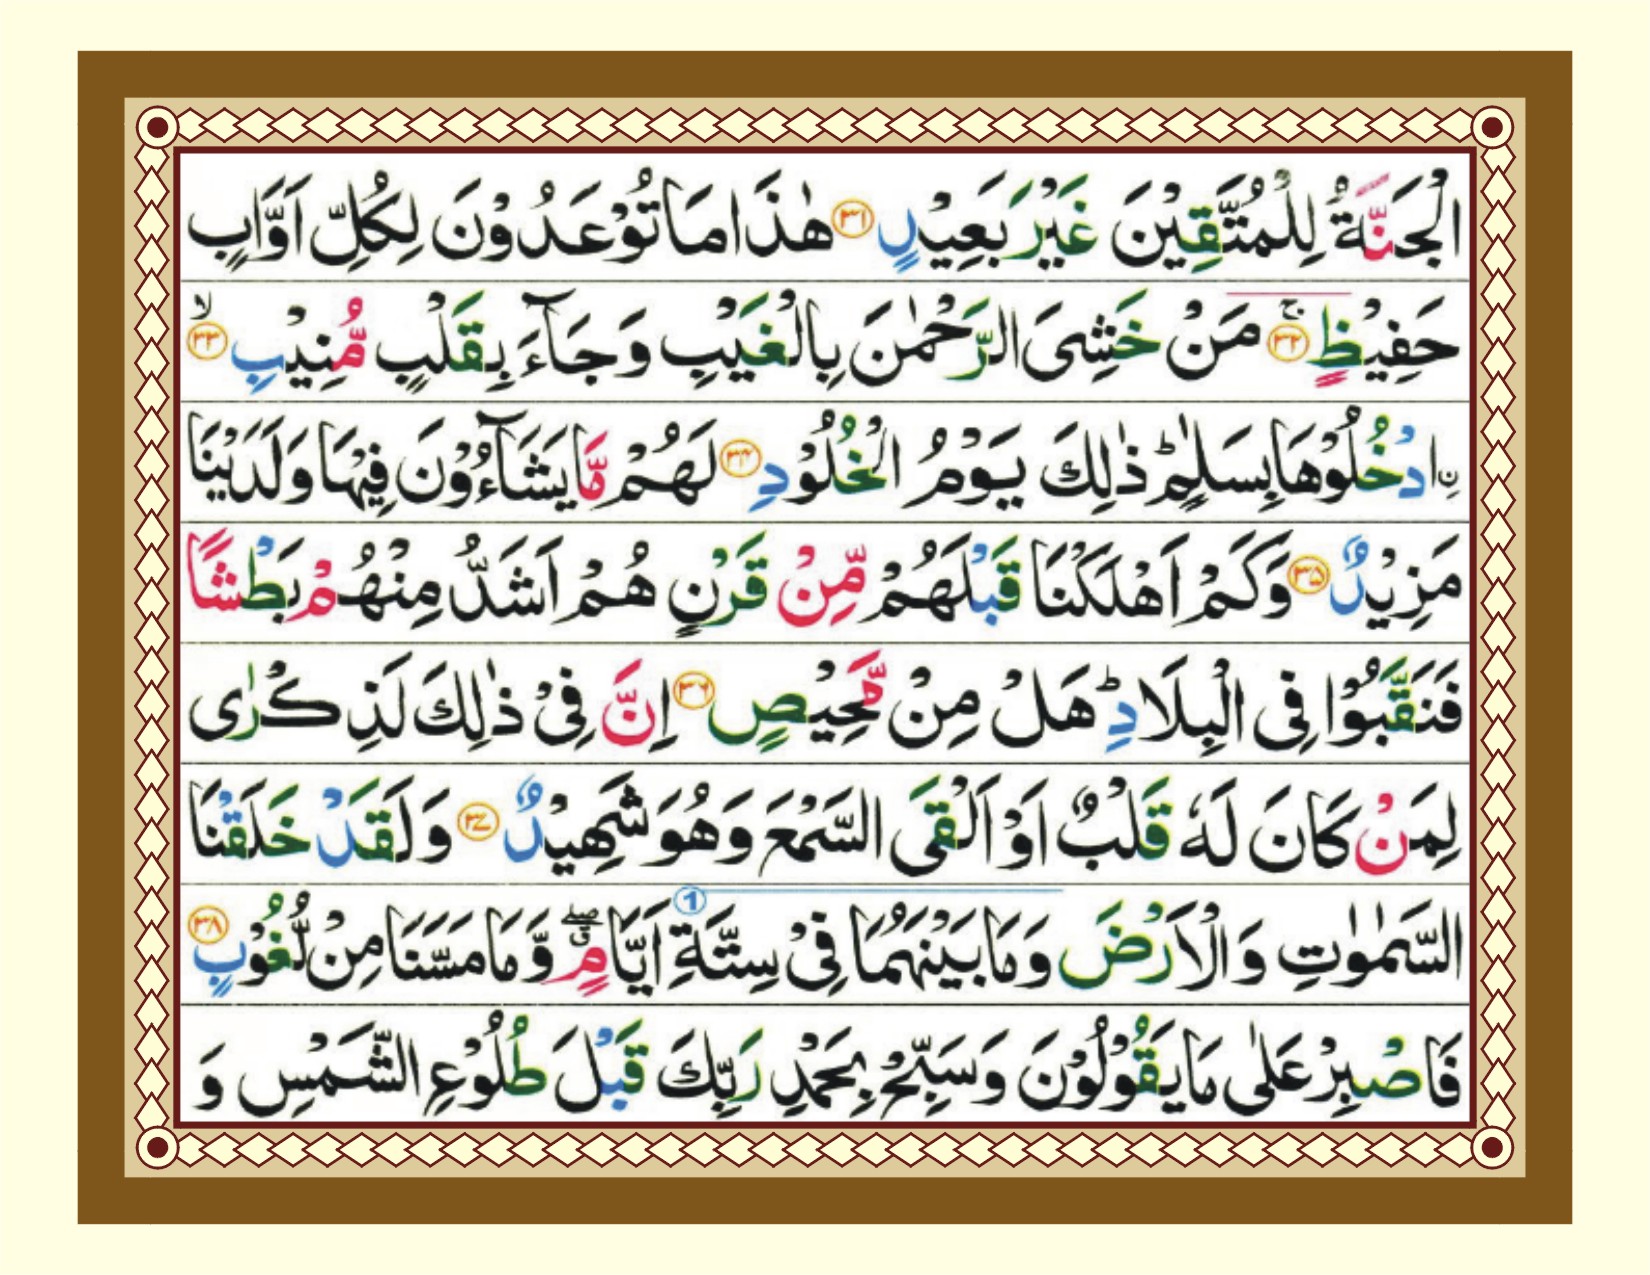 الْجَنَّةُ لِلْمُتَّقِيْنَ غَيْرَ بَعِيْدٍ ﴿۳۱﴾ هٰذَا مَا تُوْعَدُوْنَ لِكُلِّ اَوَّابٍ
حَفِيْظٍ ۚ﴿۳۲﴾ مَنْ خَشِيَ الرَّحْمٰنَ بِالْغَيْبِ وَجَآءَ بِقَلْبٍ مُّنِيْبِ ۙ﴿۳۳﴾
ۨادْخُلُوْهَا بِسَلٰمٍ ؕ ذٰلِكَ يَوْمُ الْخُلُوْدِ ﴿۳۴﴾ لَهُمْ مَّا يَشَآءُوْنَ فِيْهَا وَلَدَيْنَا
مَزِيْدٌ ﴿۳۵﴾ وَكَمْ اَهْلَكْنَا قَبْلَهُمْ مِّنْ قَرْنٍ هُمْ اَشَدُّ مِنْهُمْ بَطْشًا
فَنَقَّبُوْا فِى الْبِلَادِ ؕ هَلْ مِنْ مَّحِيْصٍ ﴿۳۶﴾ اِنَّ فِيْ ذٰلِكَ لَذِكْرٰى
لِمَنْ كَانَ لَهٗ قَلْبٌ اَوْ اَلْقَى السَّمْعَ وَهُوَ شَهِيْدٌ ﴿۳۷﴾ وَلَقَدْ خَلَقْنَا
السَّمٰوٰتِ وَالْاَرْضَ وَمَا بَيْنَهُمَا فِيْ سِتَّةِ ① اَيَّامٍ ۖق وَّمَا مَسَّنَا مِنْ لُّغُوْبٍ ﴿۳۸﴾
فَاصْبِرْ عَلٰى مَا يَقُوْلُوْنَ وَسَبِّحْ بِحَمْدِ رَبِّكَ قَبْلَ طُلُوْعِ الشَّمْسِ وَ